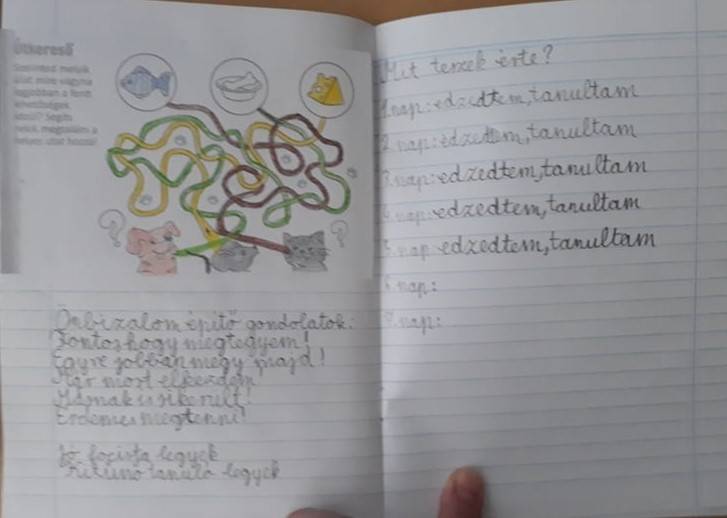 Útkereső
Szerinted melyik
állat mire vágyna
legjobban a fenti
lehetőségek
közül? Segíts
nekik megtalálni a
helyes utat hozzá!
Önbizalom építő gondolatok:
Fontos hogy megtegyem!
Egyre jobban megy majd!
Már most elkezdem
Másnak is sikerült!
Érdemes megtenni!
Jó focista legyek
Kitűnő tanuló legyek
Mit teszek érte?
1.nap:edzedtem,tanultam
2.nap:edzedtem,tanultam
3.nap:edzedtem,tanultam
4.nap:edzedtem,tanultam
5.nap:edzedtem,tanultam
6.nap:
7.nap: